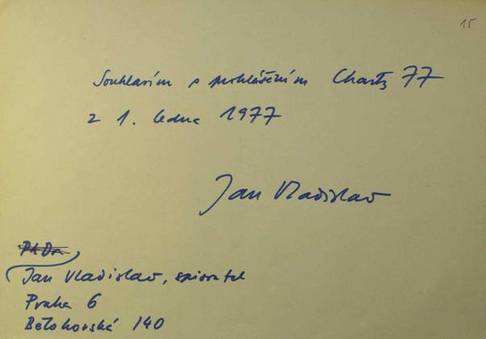 15
Souhlasím s prohlášením Charty 77
z 1. ledna 1977
Jan Vladislav
PhDr
Jan Vladislav, spisovatel
Praha 6
Bělohorská 140